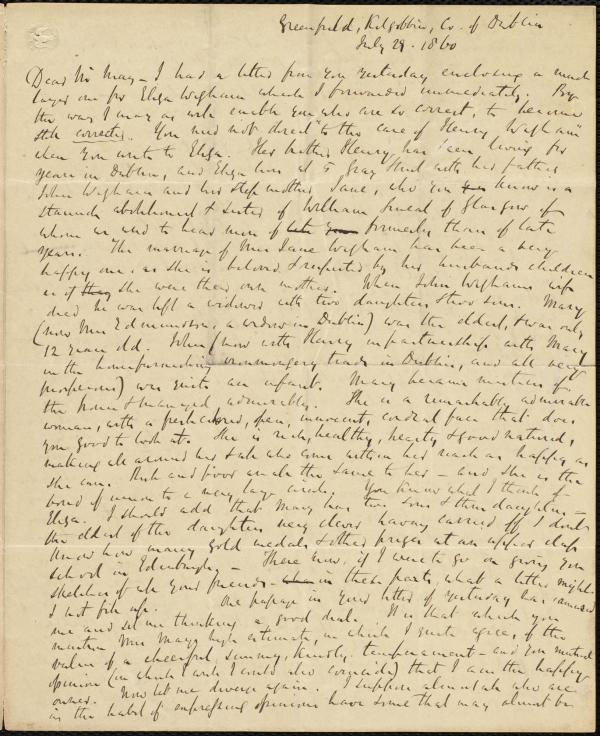 Greenfield, Kilgobbin, Co. of Dublin
July 29. 1860
Dear Mr May - I had a letter from you yesterday enclosing a much
larger one for Eliza Wigham which I forwarded immediately. By
the way I may as well enable you who are so correct, to become
still correcter. You need not direct "to the care of Henry Wigham"
when you write to Eliza. Her brother Henry has been living for
years in Dublin, and Eliza lives at 5 Gray Street with her father
John Wigham and his step mother Jane, who you know is a
staunch abolitionist & sister of William Smeal of Glasgow of
whom we used to hear more of formerly than of late
years. The marriage of Mrs Jane Wigham has been a very
happy one, as she is beloved & respected by her husband's children
as if they she were their own mother. When John Wigham's wife
died he was left a widower with two daughters & two sons. Mary
(now Mrs Edmundson, a widow in Dublin) was the eldest, & was only
12 years old. John (now with Henry in partnership with Mary
in the homefurnishing ironmongery trade in Dublin, and all very
prosperous) was quite an infant. Mary became mistress of
the house & managed admirably. She is a remarkably admirable
woman, with a fresh colored, open, innocent, cordial face that does
you good to look at. She is rich, healthy, hearty & good natured,
making all around her & all who come within her reach as happy as
she can. Rich and poor are all the same to her - and she is the
bond of union to a very large circle. You know what I think of
Eliza. I should add that Mary has two sons & three daughters -
the eldest of the daughters very clever having carried off I don't
know how many gold medals & other prizes at an upper class
school in Edinburgh. - There now, if I were to go on giving you
sketches of all your friends in these parts, what a letter might
I not fill up. One passage in your letter of yesterday has amused
me and set me thinking a good deal. It is that which you
mention Mrs May's high estimate, in which I quite agree, of the
value of a cheerful, sunny, kindly temperament - and you mutual
opinion (in which I wish I could also coincide) that I am the happy
owner. Now let me diverge again. I suppose almost all who are
in the habit of expressing opinions have some that may almost be